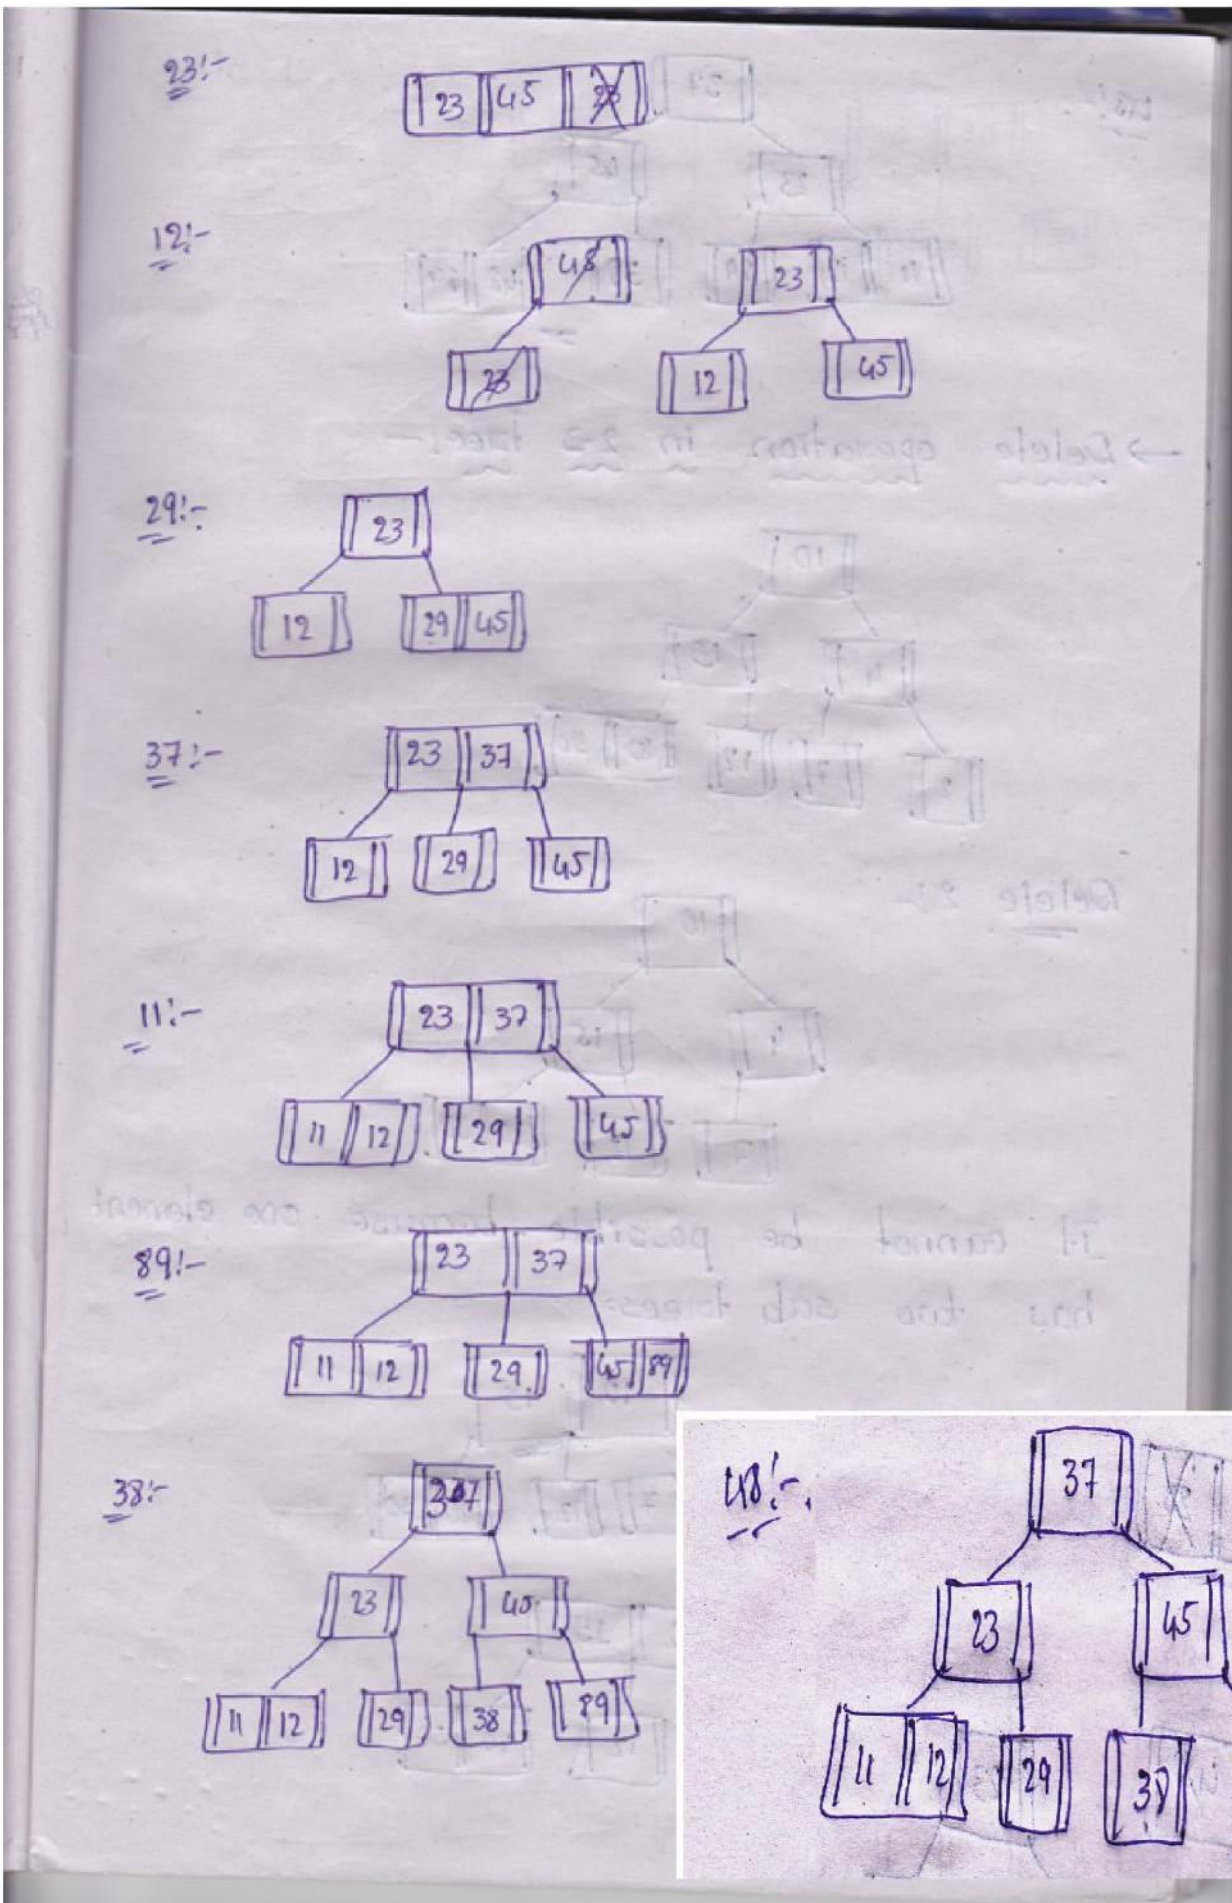 23:-
23 45
12:-
45 23
23 12 45
29:-
23
12 29 45
37:-
23 37
12 29 45
11:-
23 37
11 12 29 45
89:-
23 37
11 12 29 45 89
38:-
37
23 45
11 12 29 38 89
48:-
37
23 45
11 12 29 38